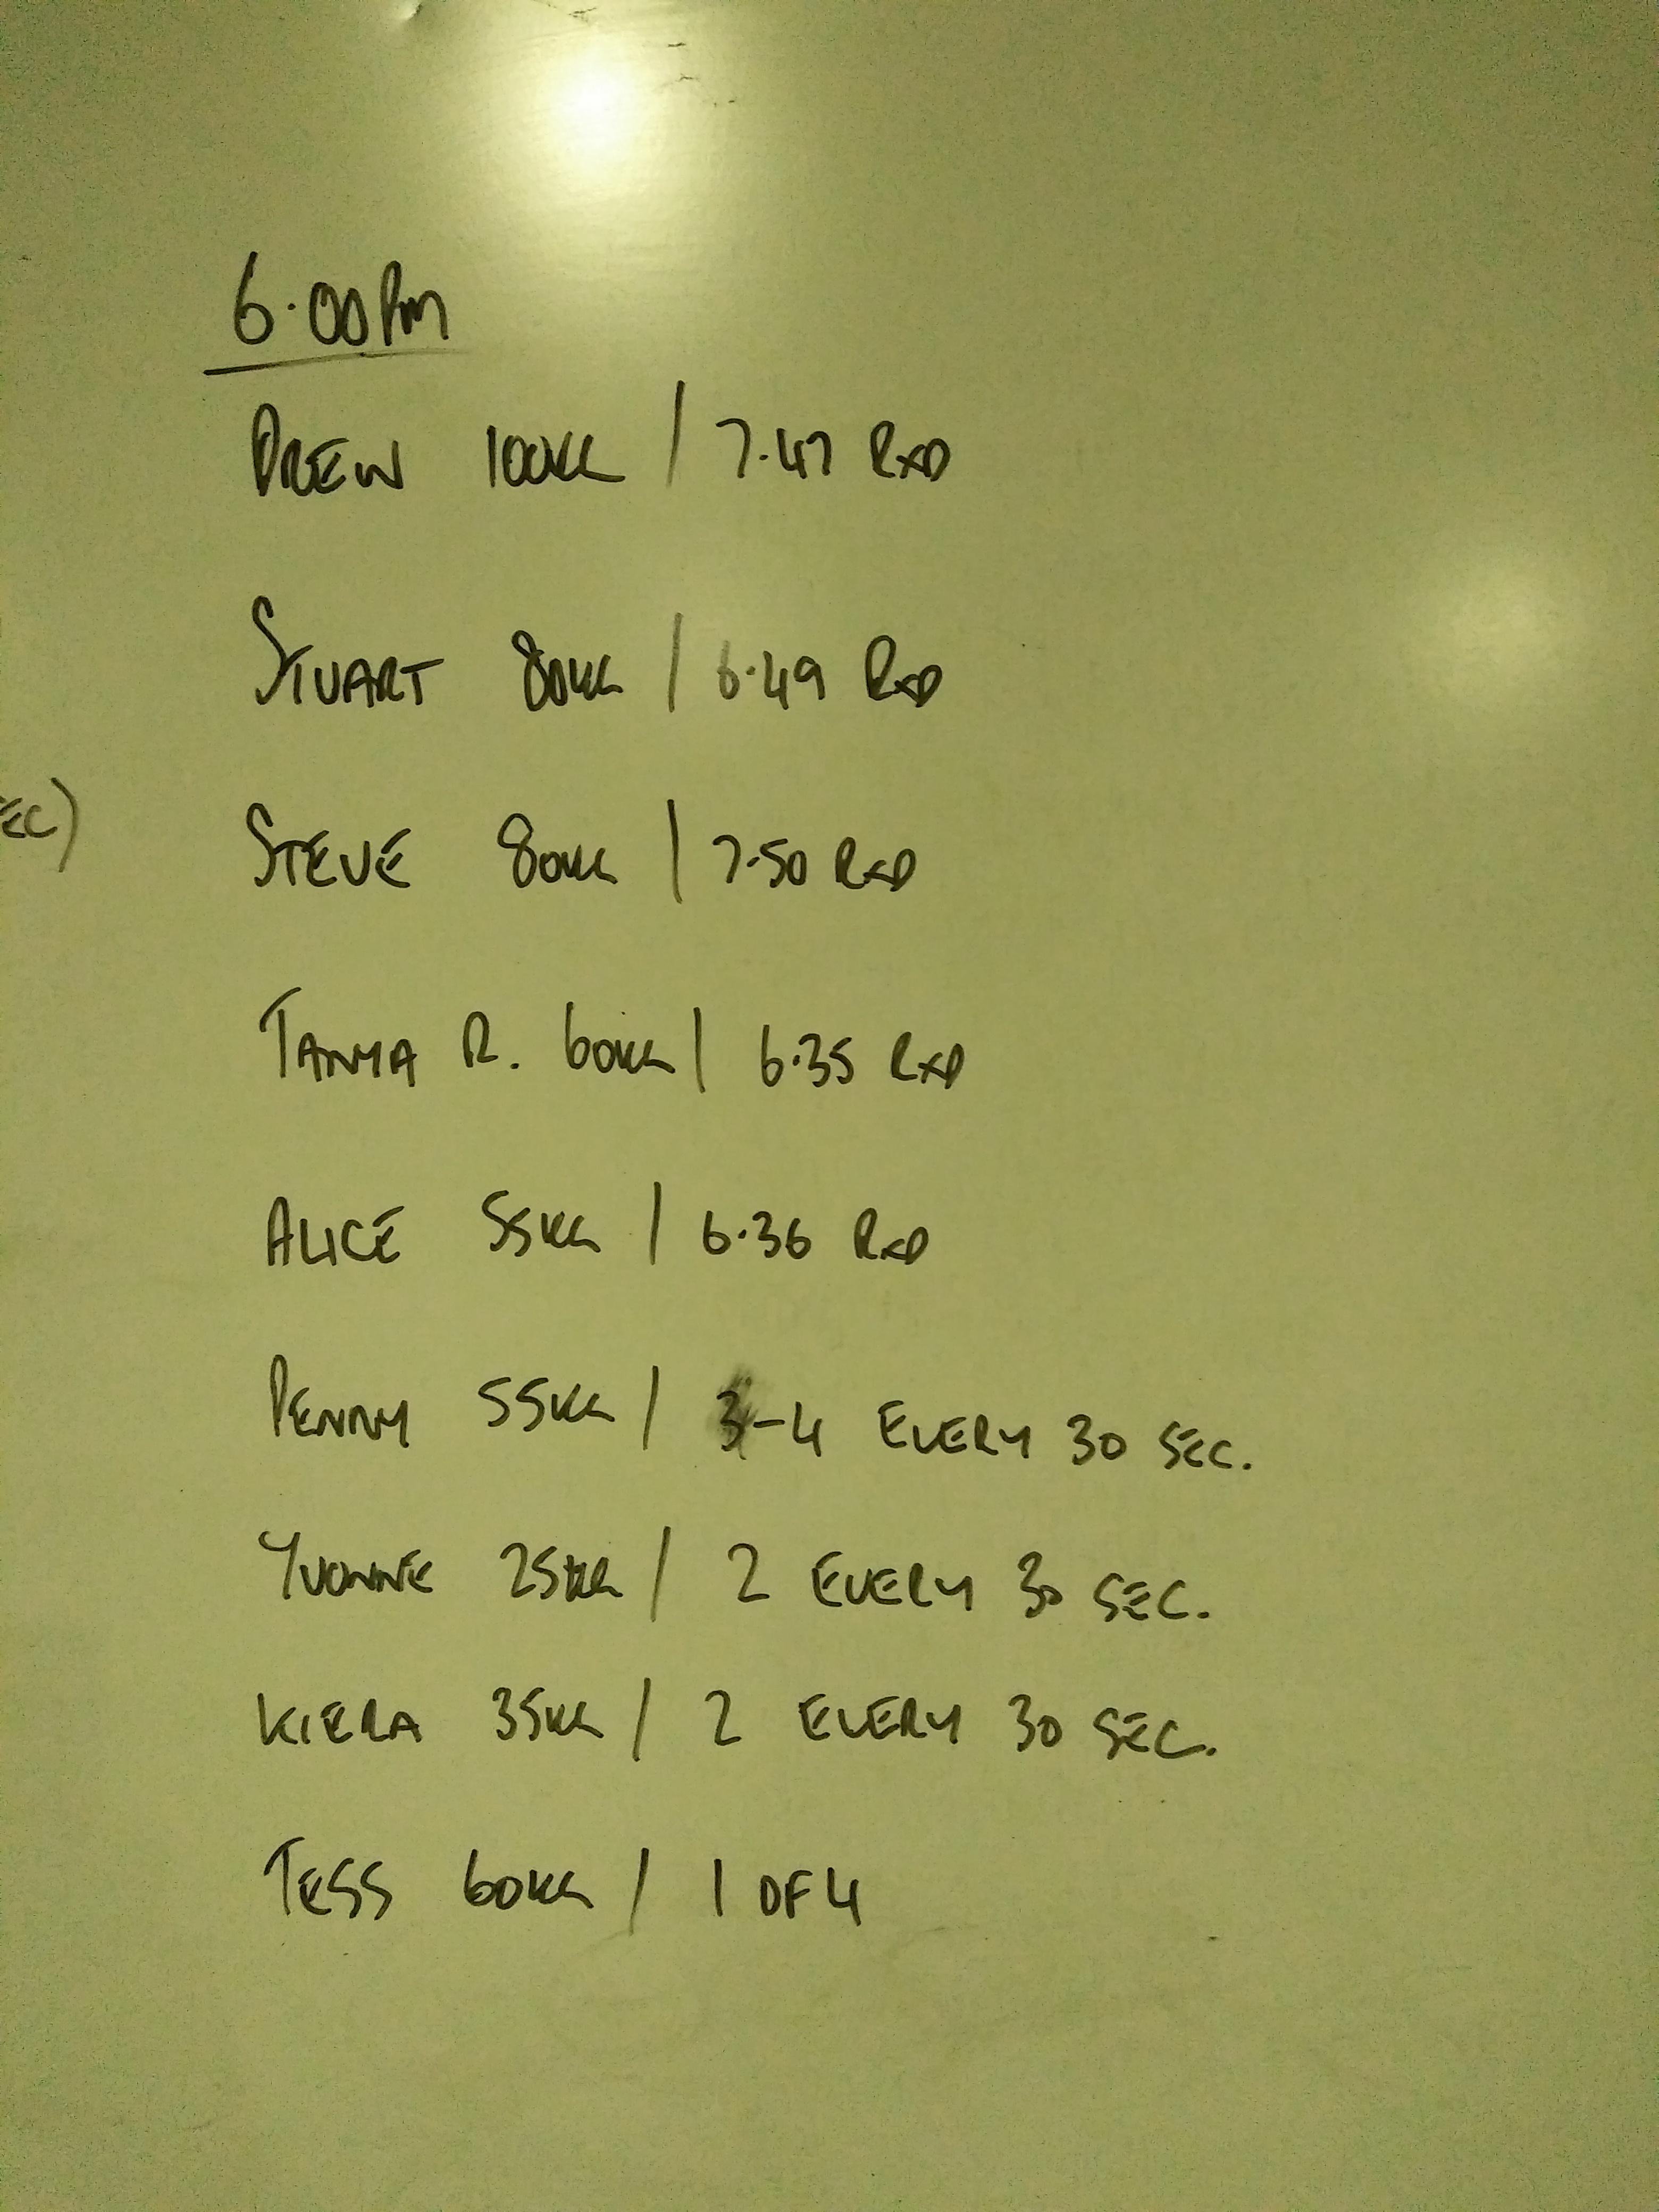 6.00PM
DREW 100KG / 7.47 RXD
STUART 80KG / 6.49 RXD
EC)
STEVE 80KG / 7.50 RXD
TANYA R. 60KG / 6.35 RXD
ALICE 55KG / 6.36 RXD
PENNY 55KG / 3-4 EVERY 30 SEC.
YVONNE 25KG / 2 EVERY 30 SEC.
KIERA 35KG / 2 EVERY 30 SEC.
TESS 60KG / 1 OF 4